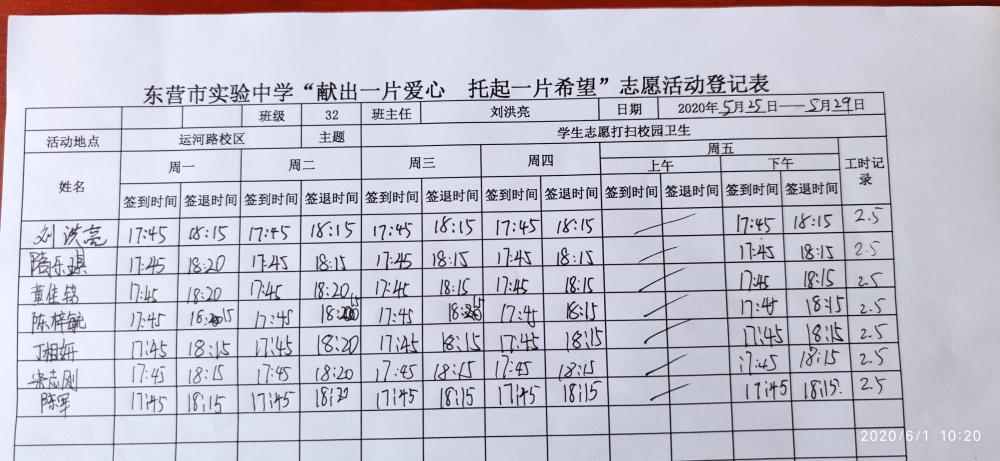 东营市实验中学“献出一片爱心 托起一片希望”志愿活动登记表
班级 32 班主任 刘洪亮 日期 2020年5月25日——5月29日
活动地点 运河路校区 主题 学生志愿打扫校园卫生
姓名 周一 周二 周三 周四 周五 工时记录
上午 下午
签到时间 签退时间 签到时间 签退时间 签到时间 签退时间 签到时间 签退时间 签到时间 签退时间 签到时间 签退时间
刘洪亮 17:45 18:15 17:45 18:15 17:45 18:15 17:45 18:15 17:45 18:15 2.5
陪乐琪 17:45 18:20 17:45 18:15 17:45 18:15 17:45 18:15 17:45 18:15 2.5
董佳铭 17:45 18:20 17:45 18:20 17:45 18:15 17:45 18:15 17:45 18:15 2.5
陈梓毓 17:45 18:15 17:45 18:15 17:45 18:15 17:45 18:15 17:45 18:15 2.5
丁相妍 17:45 18:15 17:45 18:20 17:45 18:15 17:45 18:15 17:45 18:15 2.5
志刚 17:45 18:15 17:45 18:20 17:45 18:15 17:45 18:15 17:45 18:15 2.5
陈军 17:45 18:15 17:45 18:20 17:45 18:15 17:45 18:15 17:45 18:15 2.5
2020/6/1 10:20